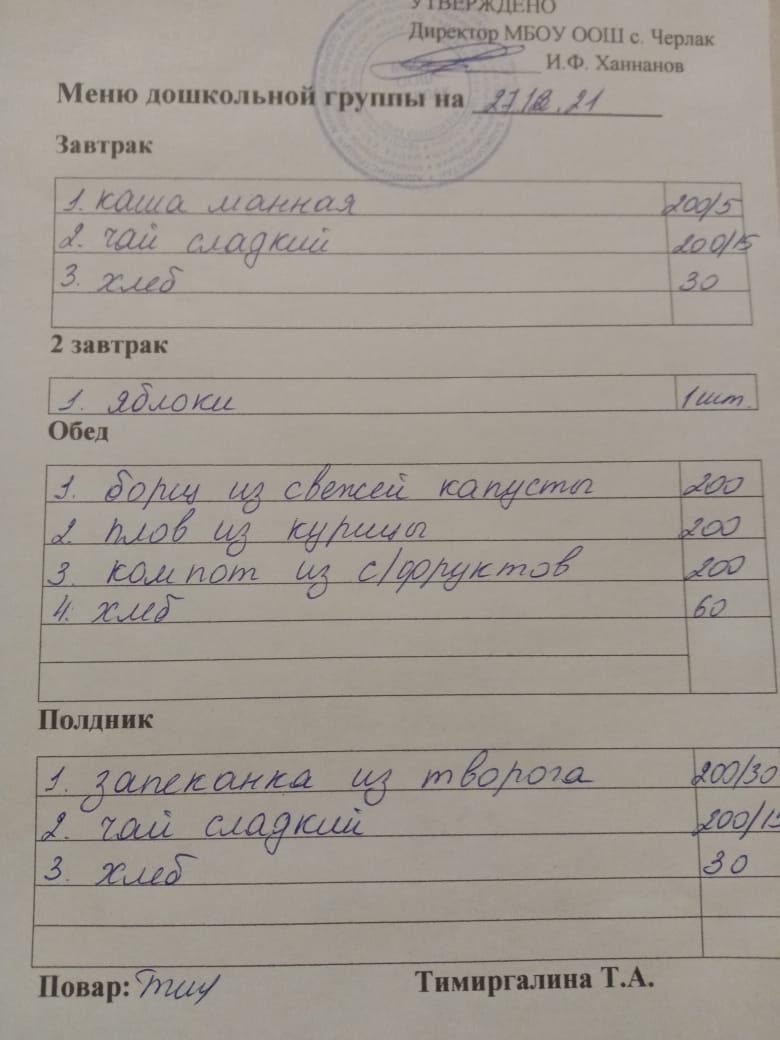 УТВЕРЖДЕНО
Директор МБОУ ООШ с. Черлак
И.Ф. Ханнанов
Меню дошкольной группы на 27.12.21
Завтрак
1. каша манная 200/5
2. чай сладкий 200/15
3. хлеб 30
2 завтрак
1. яблоки 1 шт.
Обед
1. борщ из свежей капусты 200
2. плов из курицы 200
3. компот из с/фруктов 200
4. хлеб 60
Полдник
1. запеканка из творога 200/30
2. чай сладкий 200/15
3. хлеб 30
Повар: Тимиргалина Т.А.